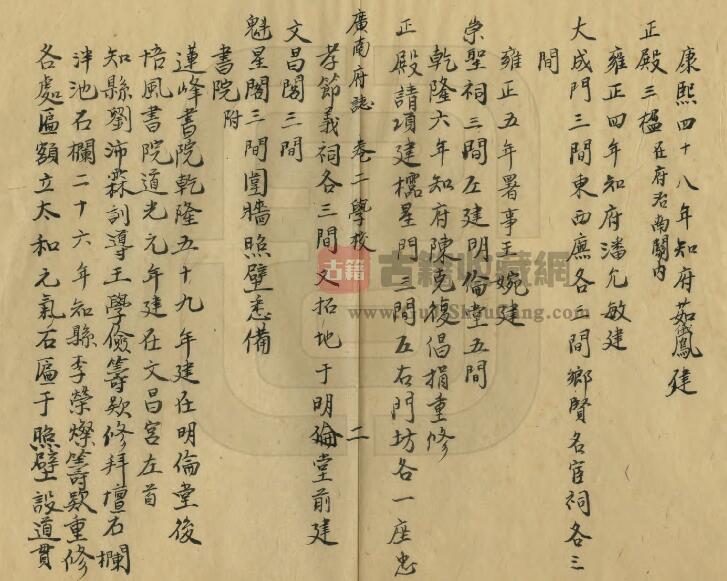 康熙四十八年知府茹儀鳳建
正殿三楹在府治南關內
雍正四年知府潘允敏建
大成門三間東西廡各三間鄉賢名宦祠各三
間
雍正五年署事王婉建
崇聖祠三間左建明倫堂五間
乾隆六年知府陳克復倡捐重修
正殿請項建櫺星門三間左右門坊各一座忠
廣南府誌 卷二學校 二
孝節義祠各三間又拓地于明倫堂前建
文昌閣三間
魁星閣三間圍牆照壁悉備
書院附
蓮峰書院乾隆五十九年建在明倫堂後
培風書院道光元年建在文昌宮左首
知縣劉沛霖訓導王學儉籌欵修拜壇石欄
泮池石欄二十六年知縣李榮燦籌欵重修
各處匾額立太和元氣石匾于照壁設道貫
古籍
古籍收藏網